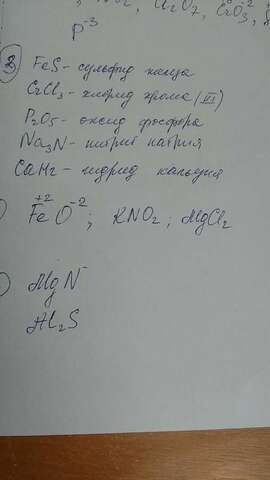 Cr₂O₇, CrO₃⁻²
P⁻³
3) FeS - сульфид
CrCl₃ - хлорид хрома (III)
P₂O₅ - оксид фосфора
Na₃N - нитрит натрия
CaH₂ - гидрид кальция
Fe⁺²O⁻²; KNO₂; MgCl₂
MgN
Al₂S